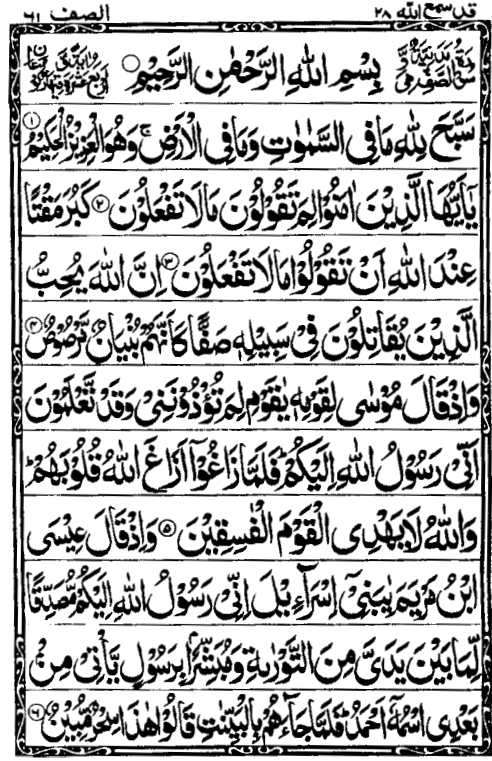 قد سمع الله ۲۸
الصف ۶۱
بِسْمِ اللهِ الرَّحْمٰنِ الرَّحِيْمِ
سَبَّحَ لِلّٰهِ مَا فِى السَّمٰوٰتِ وَمَا فِى الْاَرْضِ ۚ وَهُوَ الْعَزِيْزُ الْحَكِيْمُ ۝۱
يٰۤاَيُّهَا الَّذِيْنَ اٰمَنُوْا لِمَ تَقُوْلُوْنَ مَا لَا تَفْعَلُوْنَ ۝۲ كَبُرَ مَقْتًا
عِنْدَ اللهِ اَنْ تَقُوْلُوْا مَا لَا تَفْعَلُوْنَ ۝۳ اِنَّ اللهَ يُحِبُّ
الَّذِيْنَ يُقَاتِلُوْنَ فِىْ سَبِيْلِهٖ صَفًّا كَاَنَّهُمْ بُنْيَانٌ مَّرْصُوْصٌ ۝۴
وَاِذْ قَالَ مُوْسٰى لِقَوْمِهٖ يٰقَوْمِ لِمَ تُؤْذُوْنَنِىْ وَقَدْ تَّعْلَمُوْنَ
اَنِّىْ رَسُوْلُ اللهِ اِلَيْكُمْ ؕ فَلَمَّا زَاغُوْۤا اَزَاغَ اللهُ قُلُوْبَهُمْ ؕ
وَاللهُ لَا يَهْدِى الْقَوْمَ الْفٰسِقِيْنَ ۝۵ وَاِذْ قَالَ عِيْسَى
ابْنُ مَرْيَمَ يٰبَنِىْۤ اِسْرَآءِيْلَ اِنِّىْ رَسُوْلُ اللهِ اِلَيْكُمْ مُّصَدِّقًا
لِّمَا بَيْنَ يَدَىَّ مِنَ التَّوْرٰىةِ وَمُبَشِّرًۢا بِرَسُوْلٍ يَّاْتِىْ مِنْۢ
بَعْدِى اسْمُهٗۤ اَحْمَدُ ؕ فَلَمَّا جَآءَهُمْ بِالْبَيِّنٰتِ قَالُوْا هٰذَا سِحْرٌ مُّبِيْنٌ ۝۶